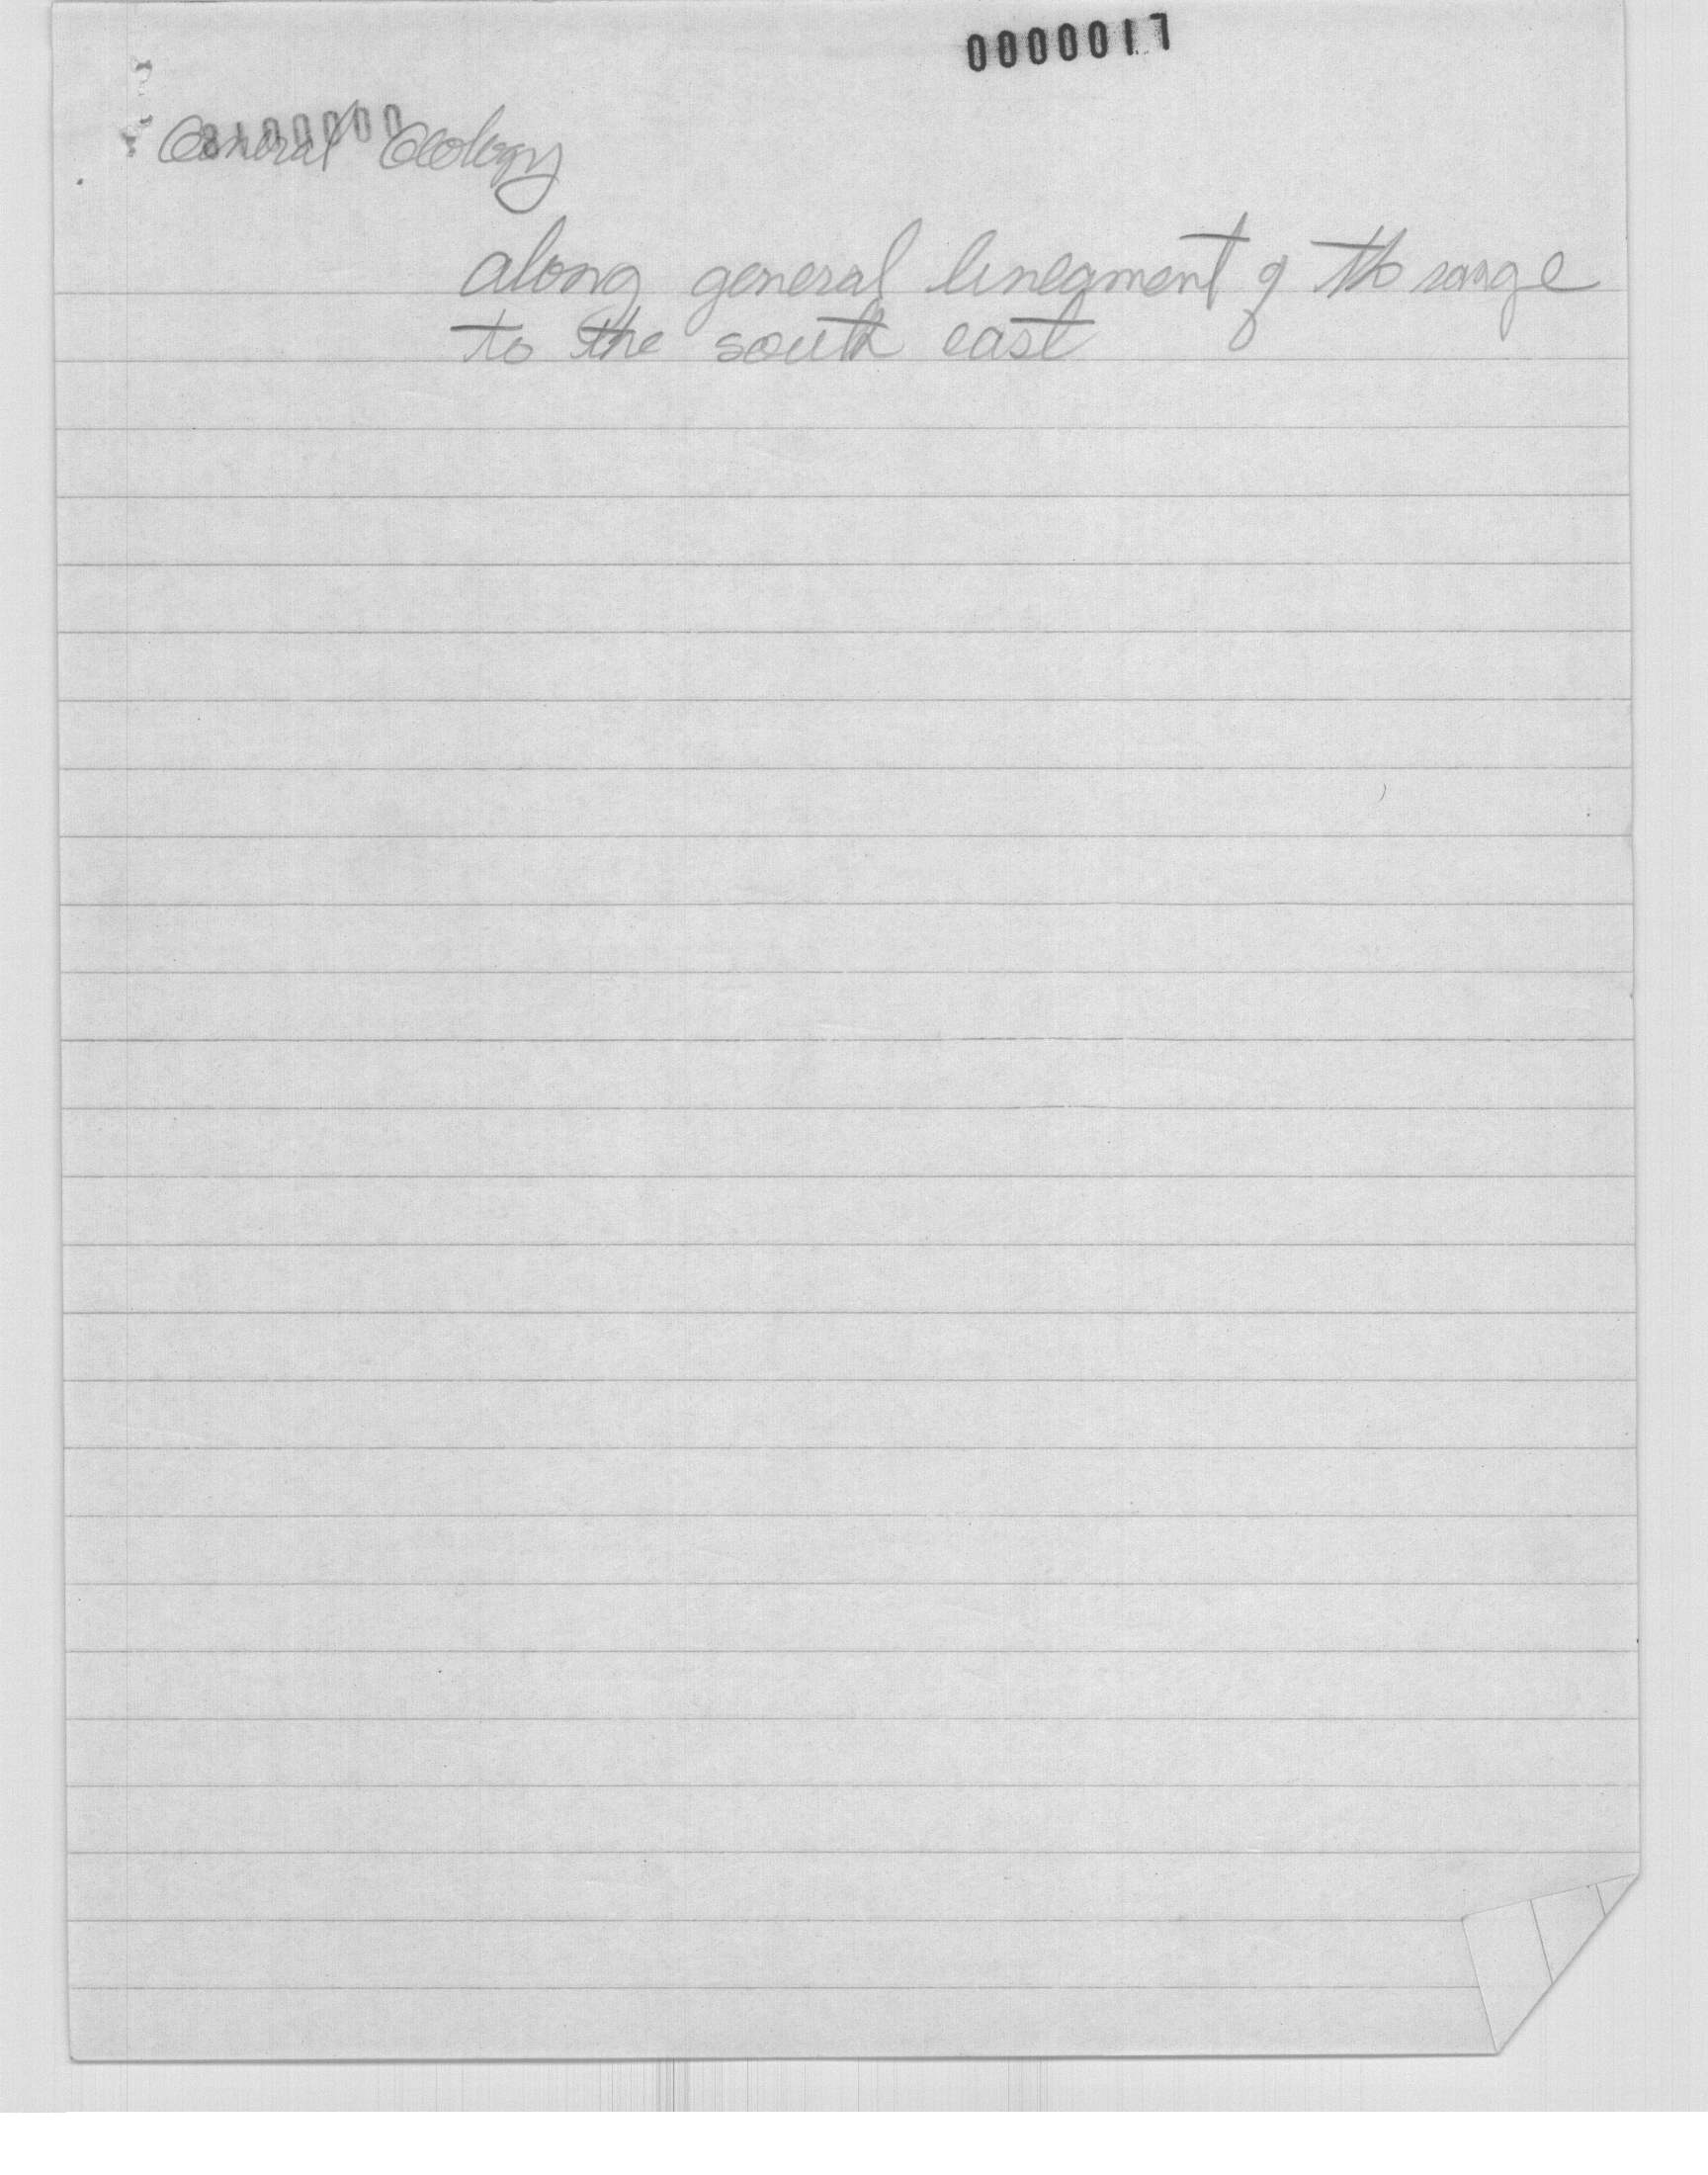 0000017
General Geology
along general lineament of the range
to the south east